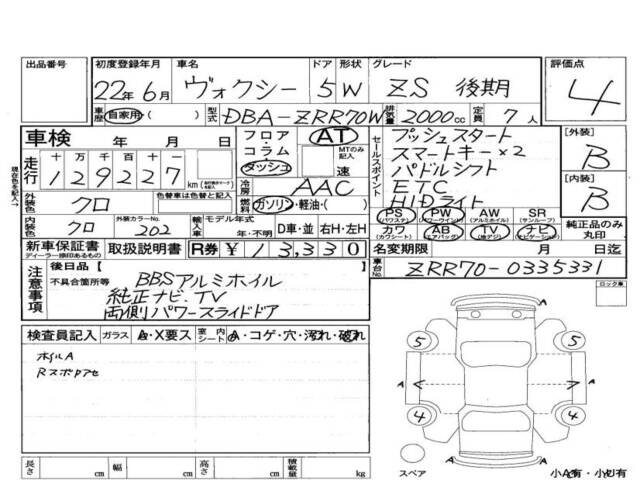 出品番号 初度登録年月 車名 ドア 形状 グレード 評価点
22年6月 ヴォクシー 5 W ZS 後期 4
車歴 自家用・( ) 型式 DBA-ZRR70W 排気量 2000cc 定員 7人
車検 年 月 日 フロア AT セールスポイント プッシュスタート [外装]
コラム MTのみ記入 スマートキー×2 B
走行 十万千百十一 ダッシュ 速 パドルシフト
129227 km 冷房 AAC ETC [内装]
外装色 クロ 色替車は色替と記入 燃料 ガソリン・軽油・( ) HIDライト B
内装色 クロ 外装カラーNo. 202 輸入車 モデル年式 年・不明 D車・並 右H・左H
PS パワステ PW パワーウィンド AW アルミホイル SR サンルーフ 純正品のみ丸印
カワ カワシート AB エアバッグ TV 地デジ ナビ ナビゲーション
新車保証書 ディーラー捺印あるもの 取扱説明書 R券 ¥13,330 名変期限 月 日迄
車台No. ZRR70-0335331
注意事項 後日品【 】
不具合箇所等 BBSアルミホイル
純正ナビ.TV
両側パワースライドドア
ロック車
検査員記入 ガラス A・X要ス 室内シート A・コゲ・穴・汚れ・破れ
ホイルA
RスポAセ
5 5
A A A
4 4
A
スペア 小A有・小U有
長さ cm 幅 cm 高さ cm 積載量 kg
現在色を記入→